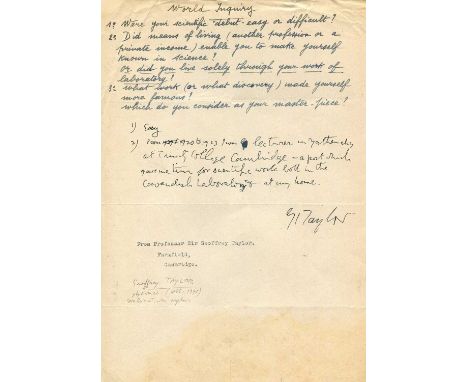 World Inquiry
1º Were your scientific debut easy or difficult?
2º Did means of living (another profession or a
private income) enable you to make yourself
known in science?
or did you live solely through your work of
laboratory?
3º what work (or what discovery) made yourself
more famous?
which do you consider as your master-piece?
1) Easy
2) From 1920 to 1923 I was lecturer in Mathematics
at Trinity College Cambridge – a post which
gave me time for scientific work both in the
Cavendish Laboratory & at my home.
G I Taylor
From Professor Sir Geoffrey Taylor.
Farmfield,
Cambridge.
Geoffrey TAYLOR